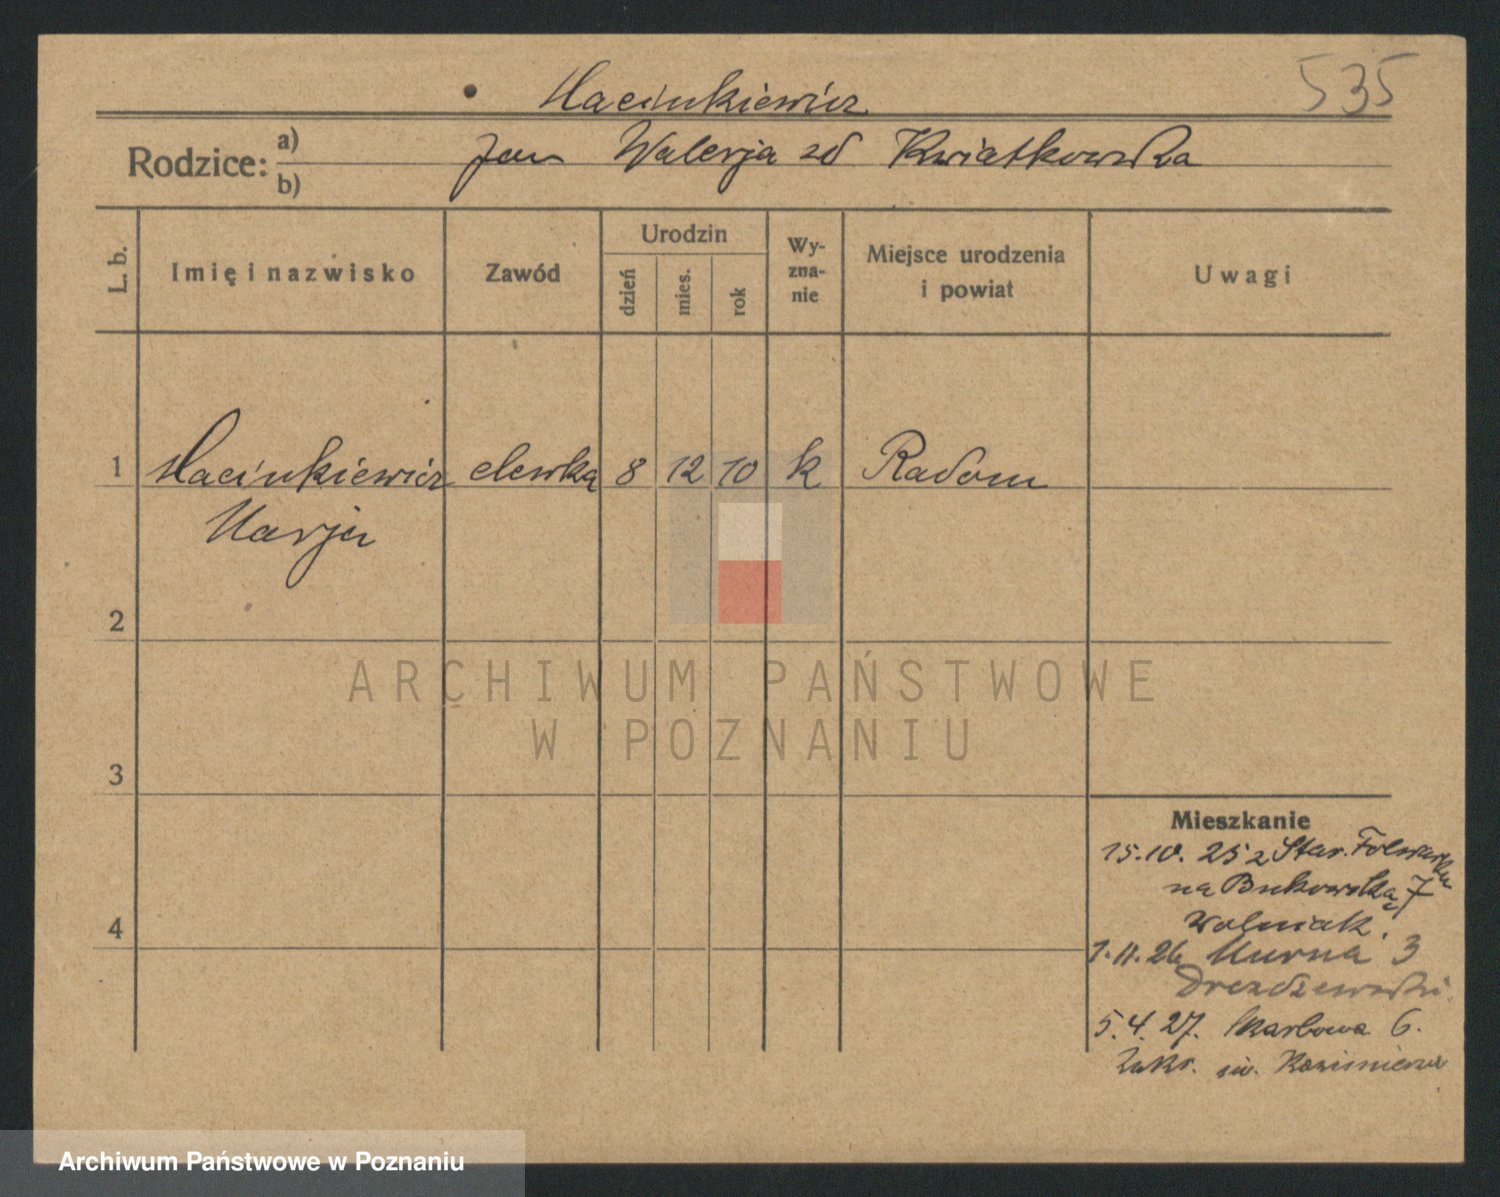 535
Macinkiewicz
Rodzice: a) b)
Jan Walerja zd Kwiatkowska
L. b.
Imię i nazwisko
Zawód
Urodzin
dzień
mies.
rok
Wy-
zna-
nie
Miejsce urodzenia
i powiat
Uwagi
1 Macinkiewicz elewką 8 12 10 k Radom
Marja
2
3
4
Mieszkanie
15.10.25 z Star. Folwarku
na Bukowską 7
Wolniak.
1.11.26 Murna 3
5.4.27. Skarbowa 6.
Zakr. św. Kazimierza
ARCHIWUM PAŃSTWOWE
W POZNANIU
Archiwum Państwowe w Poznaniu